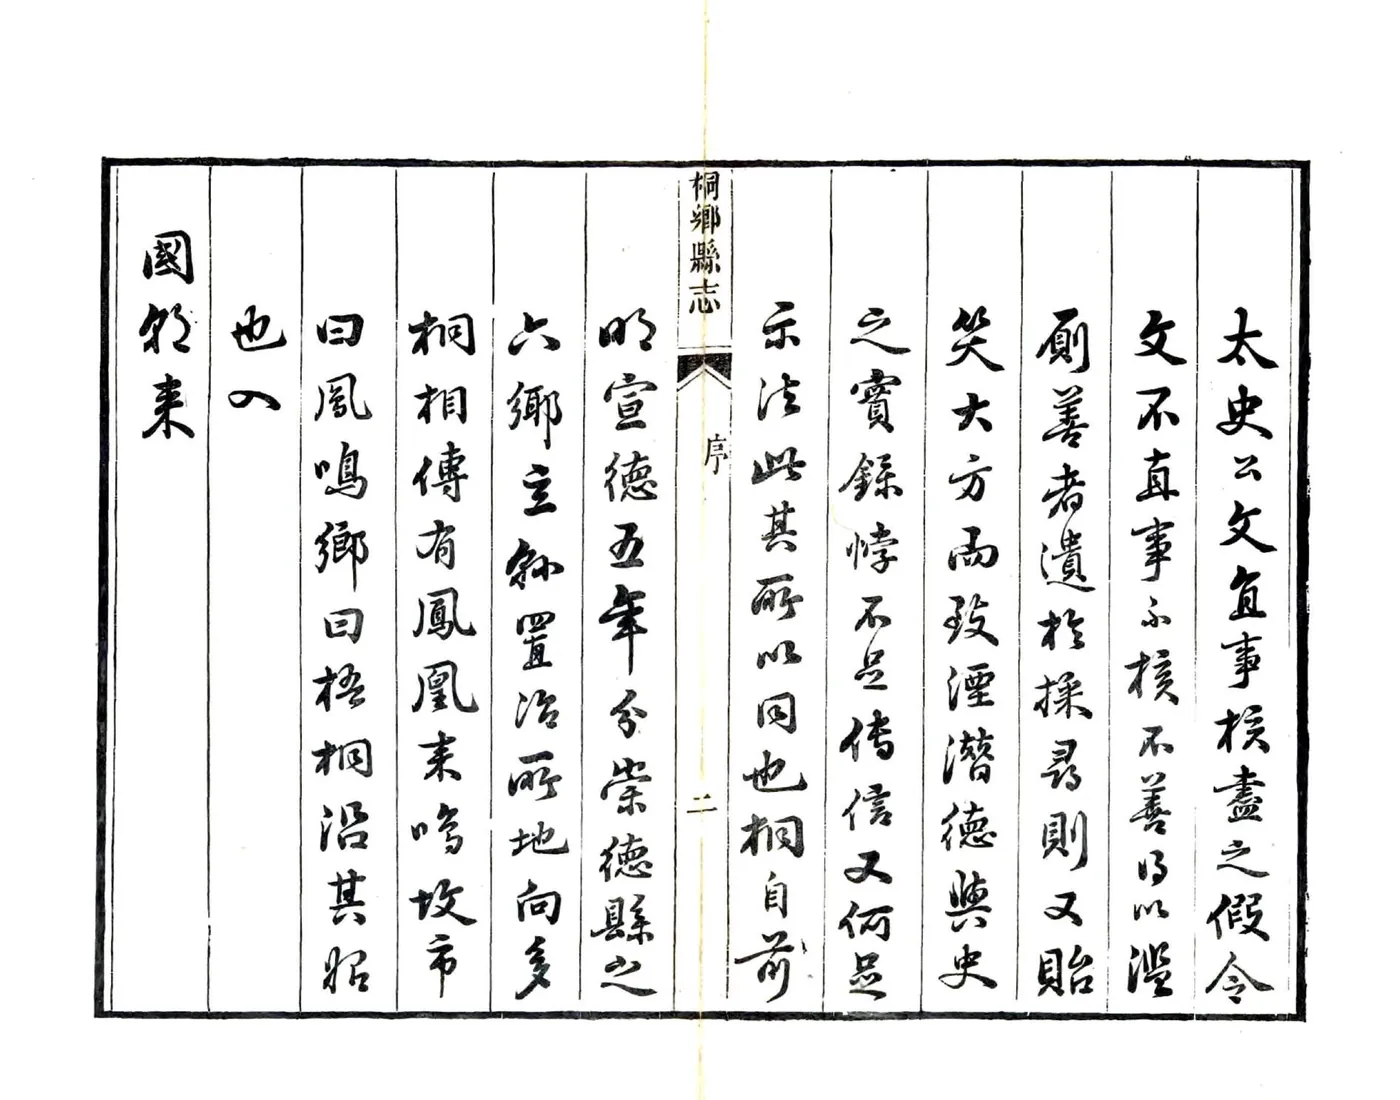 太史公文直事核盡之假令
文不直事不核不善得以濫
厠善者遺於採尋則又貽
笑大方而致湮潛德與史
之實錄悖不足傳信又何足
示法此其所以同也桐自前
桐鄉縣志
序
二
明宣德五年分崇德縣之
六鄉立縣置治所地向多
桐相傳有鳳凰來鳴故市
曰鳳鳴鄉曰梧桐沿其昭
也入
國朝来